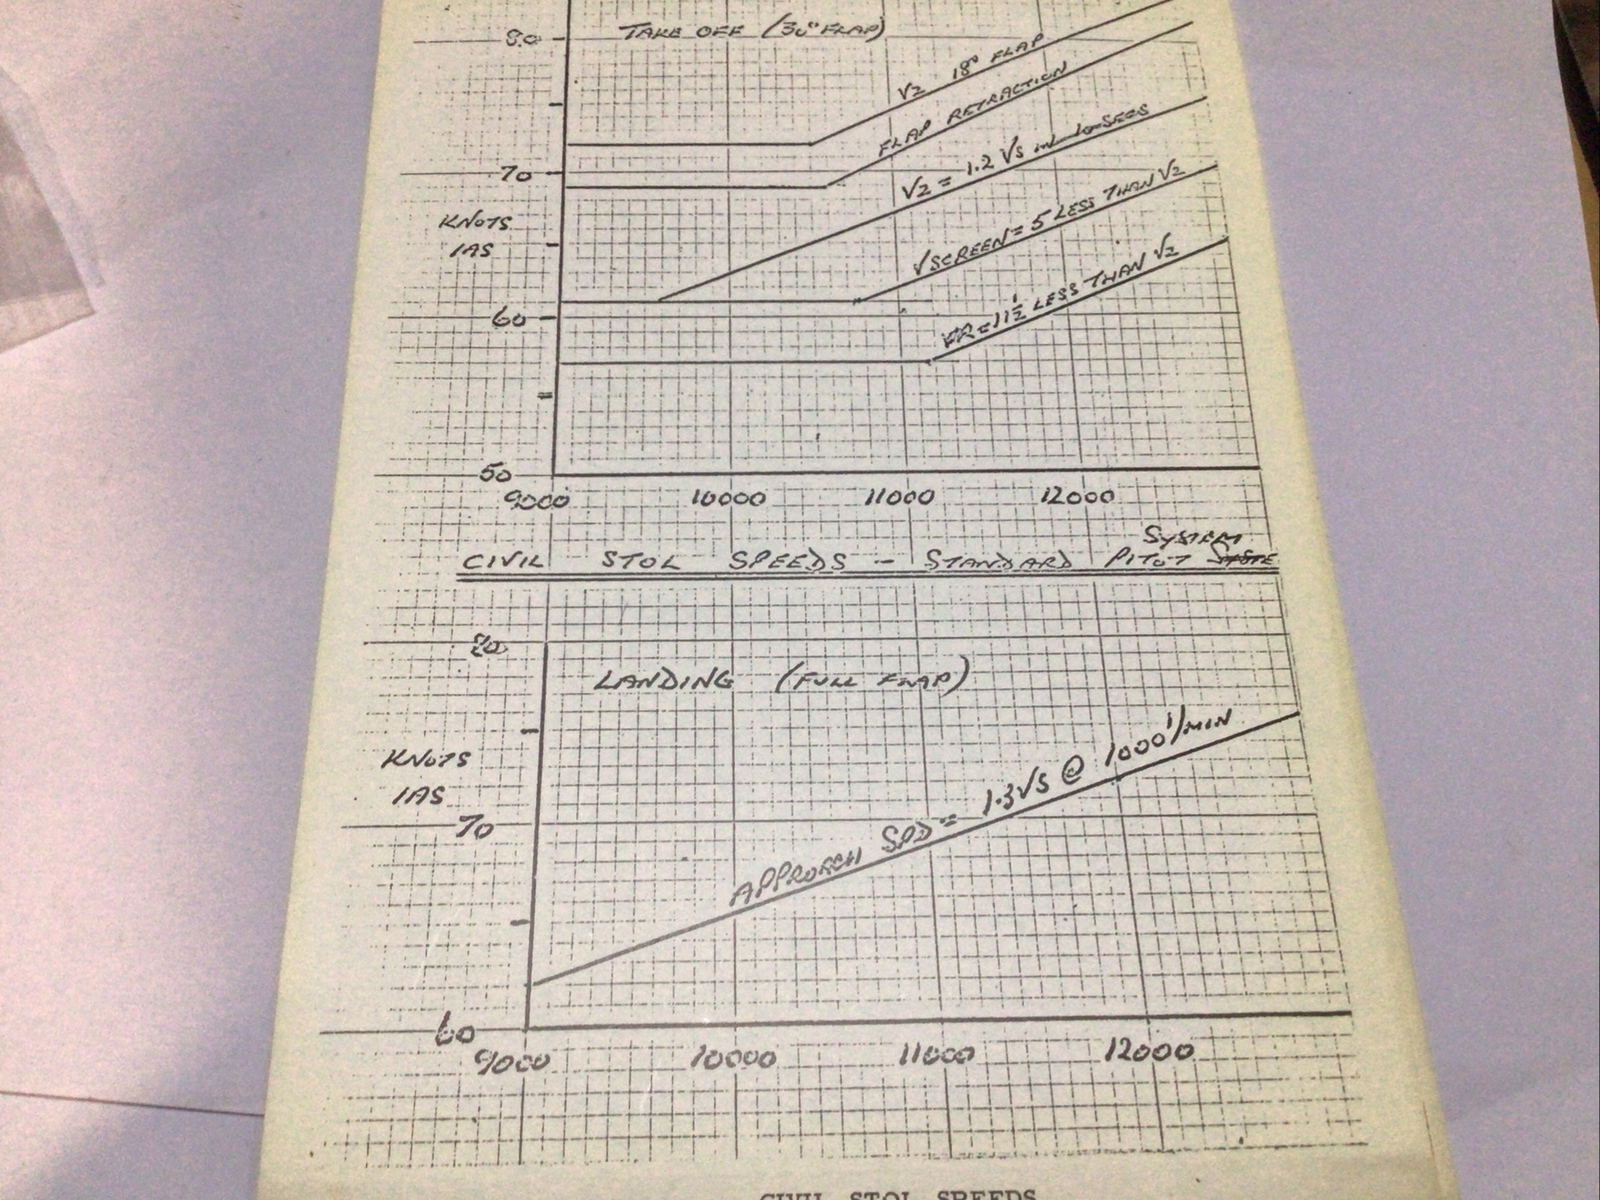 80
TAKE OFF (30° FLAP)
V2 18° FLAP
FLAP RETRACTION
70
V2 = 1.2 VS
KNOTS
IAS
VSCREEN = 5 LESS THAN V2
60
VR = 11½ LESS THAN V2
50
9000 10000 11000 12000
CIVIL STOL SPEEDS - STANDARD PITOT SYSTEM
80
LANDING (FULL FLAP)
KNOTS
IAS
APPROACH SPD = 1.3VS @ 1000'/MIN
70
60
9000 10000 11000 12000
CIVIL STOL SPEEDS